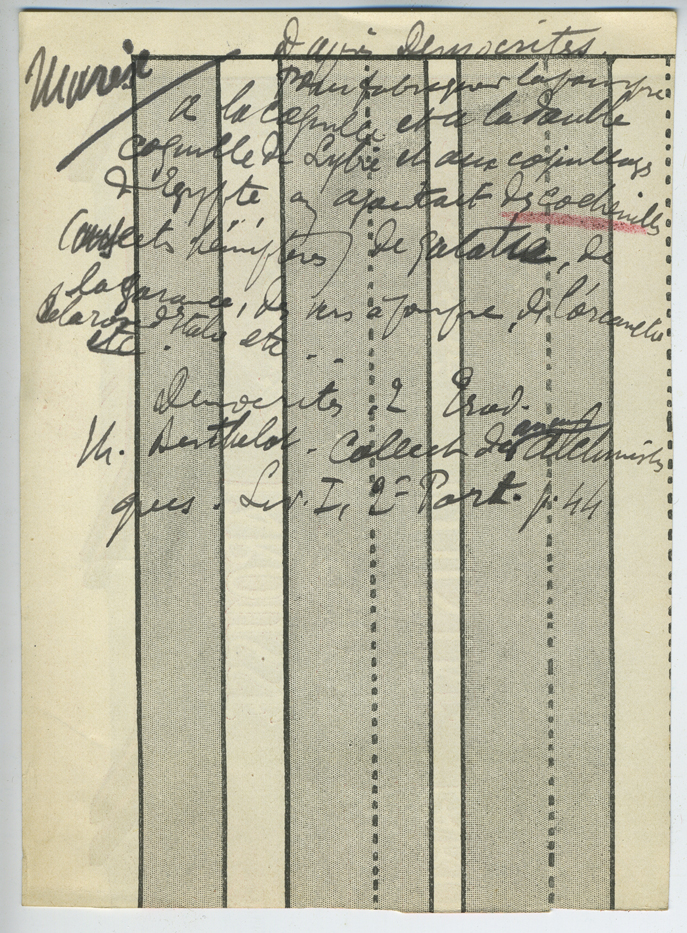 Murex
d'après Democrites.
Pour fabriquer la pourpre
à la coquille et à la double
coquille de Lybie et aux coquillages
d'Egypte, on ajoutait des cochenilles
(insects hémiptères) de galatie, de
la garance, des vers à pourpre, de l'orcanette
de la d'Italie etc...
etc.
Democrites. 2 Trad.
M. Berthelot. Collect. des Alchimist
ques. Liv. I, 2e Part. p. 44